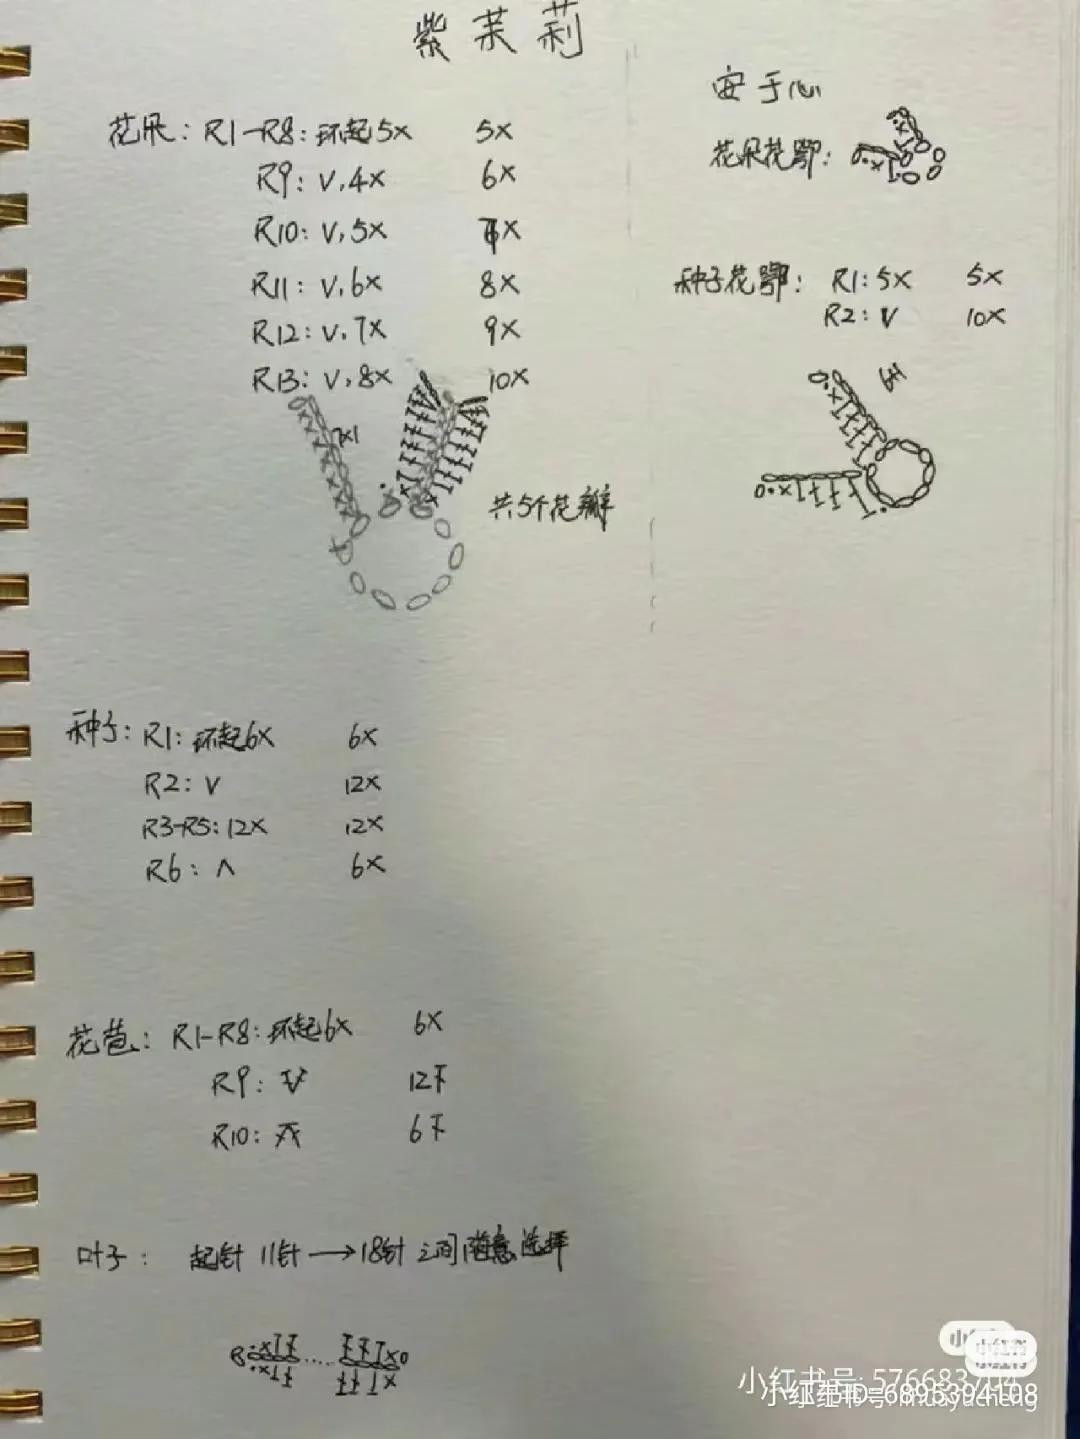 紫茉莉
安于心
花朵：R1-R8：环起5X 5X
R9：V,4X 6X
R10：V,5X 7X
R11：V,6X 8X
R12：V,7X 9X
R13：V,8X 10X
共5个花瓣
花朵花鄂：
种子花鄂：R1：5X 5X
R2：V 10X
种子：R1：环起6X 6X
R2：V 12X
R3-R5：12X 12X
R6：Λ 6X
花苞：R1-R8：环起6X 6X
R9： 12
R10： 6
叶子：起针 11针→18针 之间随意选择
小红书
小红书号：576683
小红书ID:6895394108